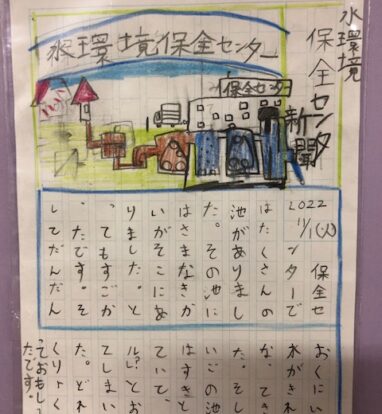 水環境
保全センター
新聞
水環境保全センター
保全センター
2022
11/1(火)
保全セ
ンターで
はたくさんの
池がありまし
た。その池に
はさまなきか
いがそこにあ
りました。と
ってもすごか
ったです。そ
してだんだん
おくにい
水がきれ
な、てき
た。そし
いごの池
はすきと
ていて、
とお
てしまい
た。どれ
くりょく
っておもし
たです。